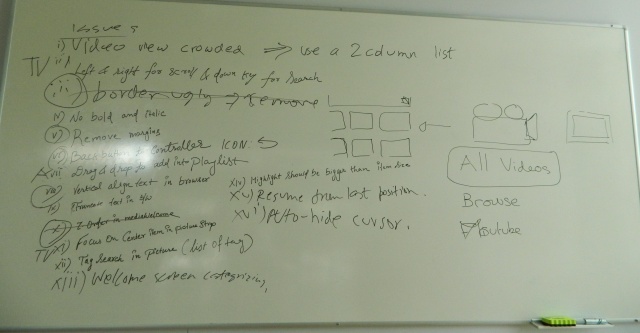 issues
i) Video view crowded ⇒ use a 2 column list
TV ii) Left & right for scroll & down try for search
border ugly → remove
iv) No bold and italic
v) Remove margins
Controller ICON
vii Drag & drop to add into playlist
viii) Vertical align text in browser
ix) text in
x) Z Order in
TV xi) Focus on Center item in picture strip
xii) Tag search in picture (list of tag)
xiii) Welcome screen categorizing,
xiv) Highlight should be bigger than item size
xv) Resume from last position.
xvi) Auto-hide cursor.
All Videos
Browse
Youtube